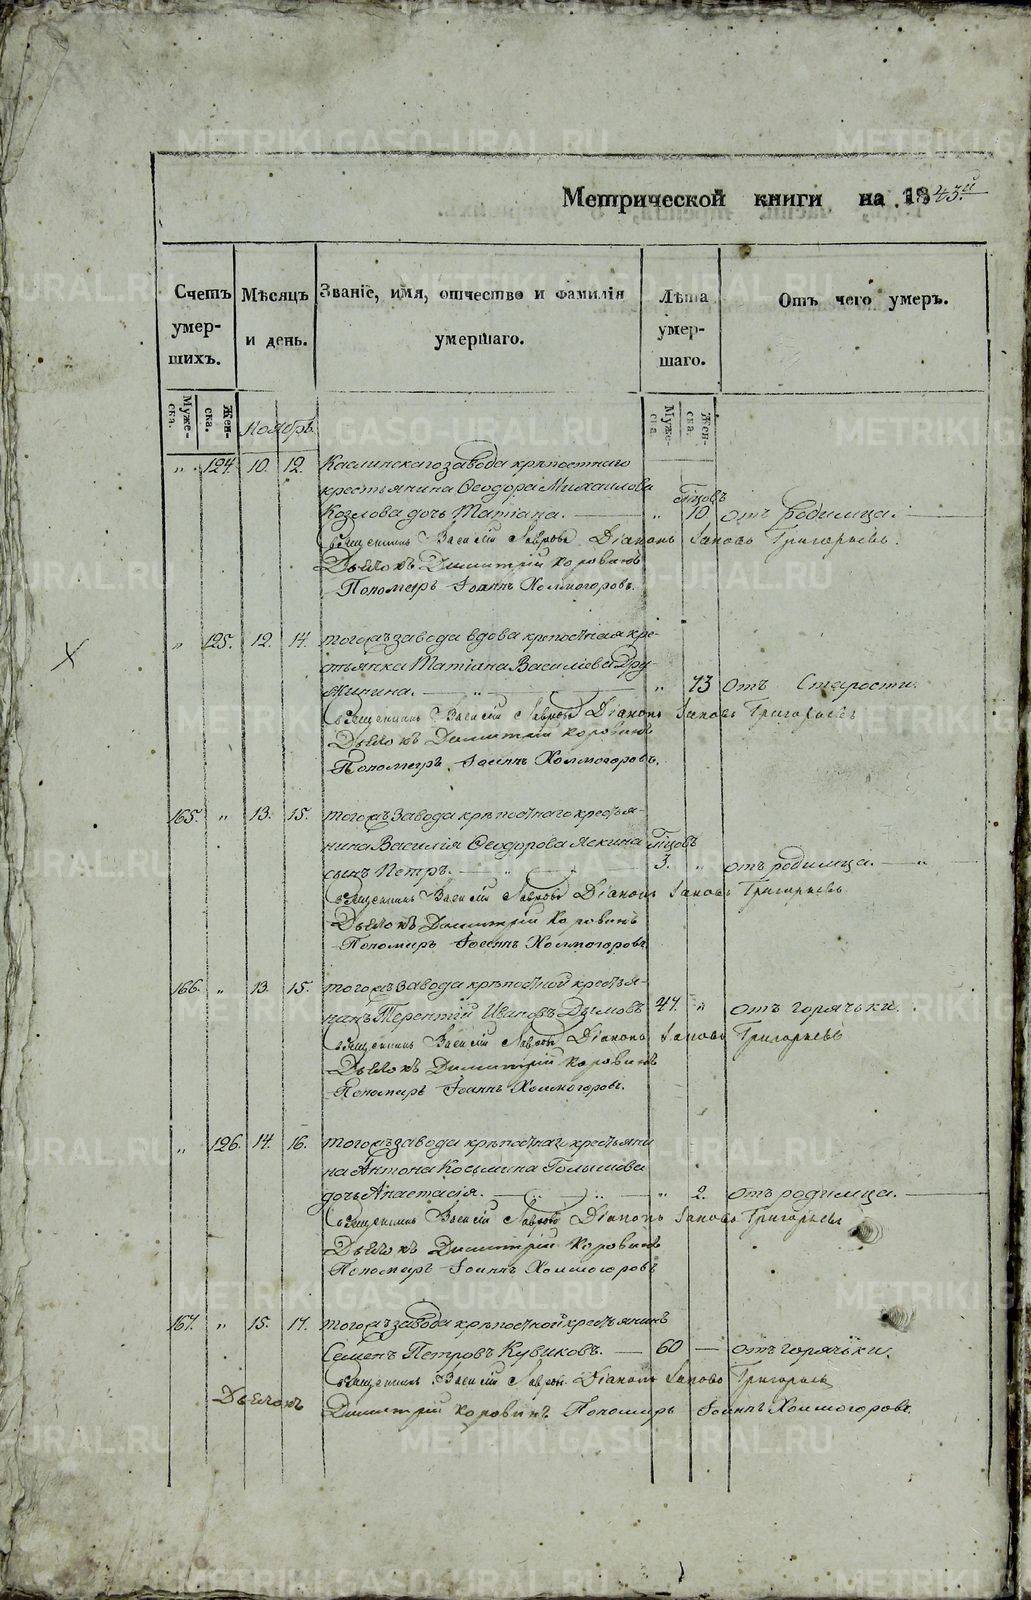 Метрической книги на 1843.й
Счетъ умер- шихъ.
Мѣсяцъ и день.
Званіе, имя, отчество и фамилія умершаго.
Лѣта умер- шаго.
Отъ чего умеръ.
Муже- ска. Жен- ска.
Ноябрь
Муже- ска Жен- ска.
" 124. 10. 12. Каслинскаго завода крѣпостнаго
крестьянина Ѳеодора Михаилова
Козлова дочь Татіана. " 10 отъ родимца.
Священникъ Василій Лавровъ Діаконъ Іаковъ Григорьевъ.
Дьячокъ Димитрій Коровинъ
Пономарь Іоаннъ Холмогоровъ.
" 125. 12. 14. того жъ завода вдова крѣпостная кре-
стьянка Татіана Васильева Дру-
жинина. " " 73 отъ Старости.
Священникъ Василій Лавровъ Діаконъ Іаковъ Григорьевъ
Дьячокъ Димитрій Коровинъ
Пономарь Іоаннъ Холмогоровъ.
165. " 13. 15. того жъ завода крѣпостнаго крестья-
нина Василія Ѳеодорова Яскина
сынъ Петръ. " 3. " отъ родимца. "
Священникъ Василій Лавровъ Діаконъ Іаковъ Григорьевъ
Дьячокъ Димитрій Коровинъ
Пономарь Іоаннъ Холмогоровъ.
166. " 13. 15. того жъ завода крѣпостной крестья-
нинъ Терентій Ивановъ Дымовъ 47. " отъ горячьки.
Священникъ Василій Лавровъ Діаконъ Іаковъ Григорьевъ
Дьячокъ Димитрій Коровинъ
Пономарь Іоаннъ Холмогоровъ.
" 126. 14. 16. того жъ завода крѣпостнаг крестьяни
на Антона Косьмина Голышева
дочь Анастасія. " " " 2. отъ родимца.
Священникъ Василій Лавровъ Діаконъ Іаковъ Григорьевъ
Дьячокъ Димитрій Коровинъ
Пономарь Іоаннъ Холмогоровъ
167. " 15. 17. того жъ завода крѣпостной крестьянинъ
Семенъ Петровъ Кувиковъ. 60 отъ горячьки.
Священникъ Василій Лавровъ Діаконъ Іаковъ Григорьевъ
Дьячокъ Димитрій Коровинъ Пономарь Іоаннъ Холмогоровъ.
METRIKI.GASO-URAL.RU